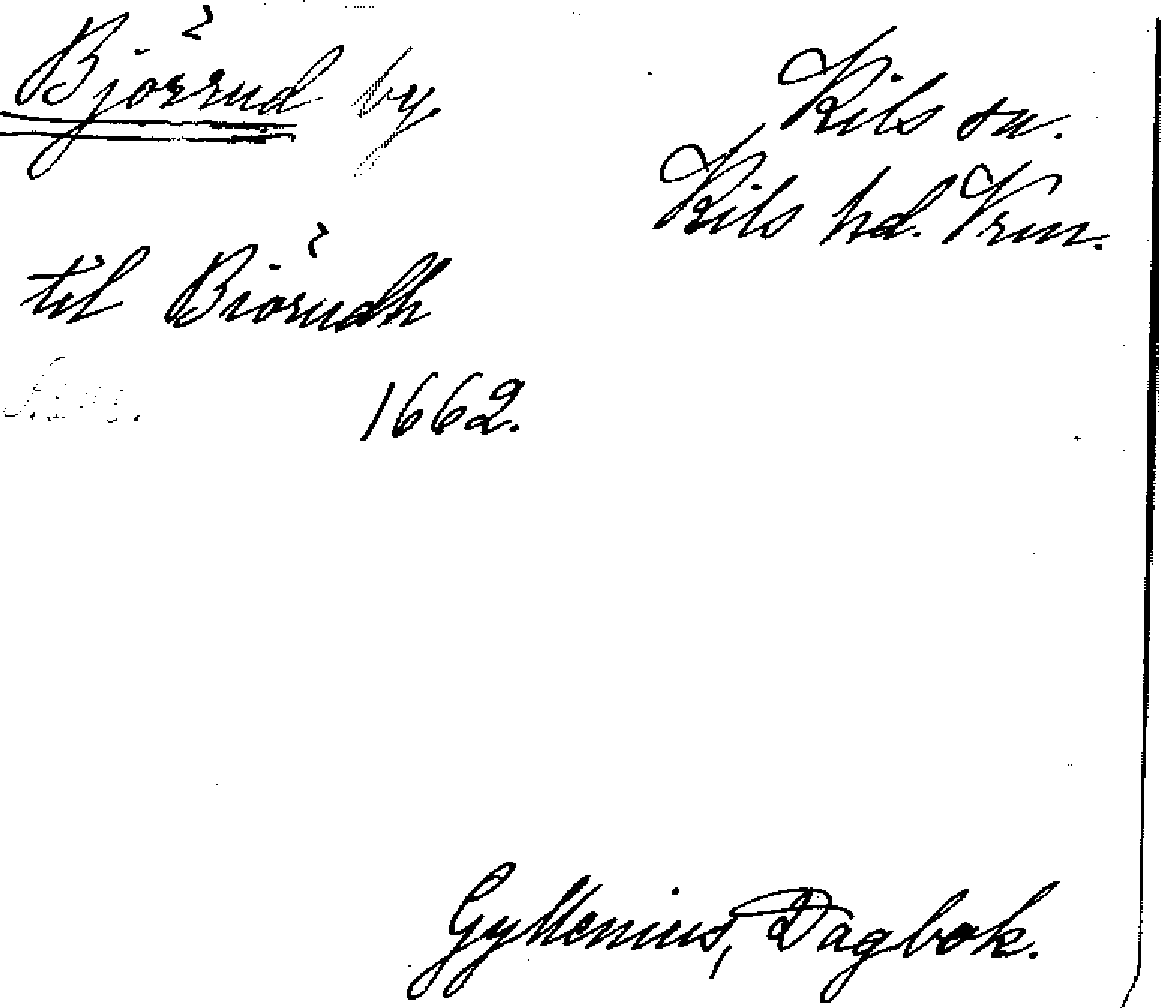 Björrud by.
Kils sn.
Kils hd. Vrm.
til Biörudh
1662.
Gyllenius, Dagbok.